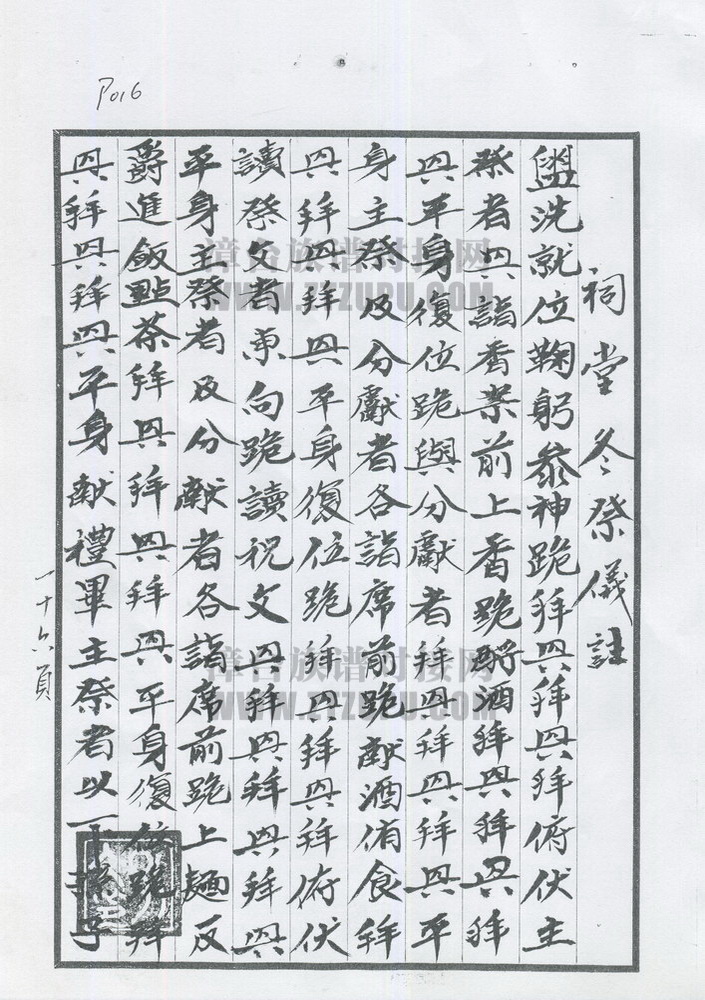 P016
祠堂冬祭儀註
盥洗就位鞠躬參神跪拜興拜興拜俯伏主
祭者興詣香案前上香跪酹酒拜興拜興拜
興平身復位跪與分獻者拜興拜興拜興平
身主祭及分獻者各詣席前跪献酒侑食拜
興拜興拜興平身復位跪拜興拜興拜俯伏
讀祭文者東向跪讀祝文興拜興拜興拜興
平身主祭者及分献者各詣席前跪上麵反
爵進飯點茶拜興拜興拜興平身復位跪拜
興拜興拜興平身献禮畢主祭者以下孫子
一十六頁
漳台族谱对接网
WWW.ZTZUPU.COM
漳台族谱对接网
WWW.ZTZUPU.COM